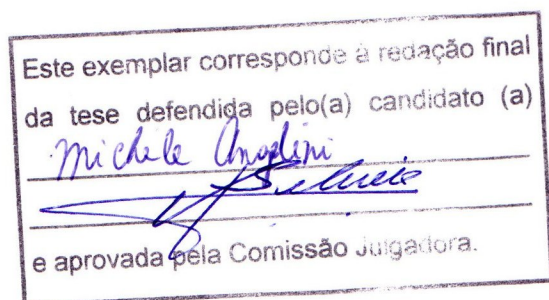 Este exemplar corresponde à redação final
da tese defendida pelo(a) candidato (a)
Michele
e aprovada pela Comissão Julgadora.